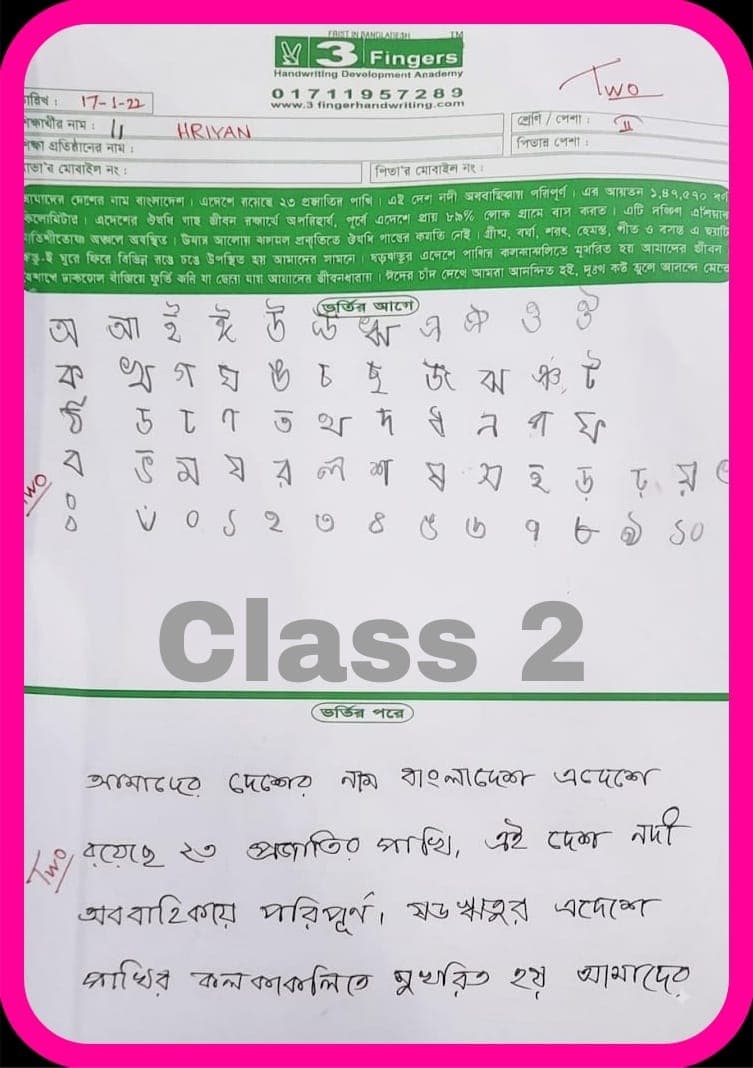 FRIST IN BANGLADESH TM
3 Fingers
Handwriting Development Anademy
01711957289
www.3 fingerhandwriting.com
Two
তারিখ : 17-1-22
নাম : HRIYAN
শ্রেণি / পেশা : II
শিক্ষা প্রতিষ্ঠানের নাম :
পিতার পেশা :
মাতা'র মোবাইল নং :
পিতা'র মোবাইল নং :
আমাদের দেশের নাম বাংলাদেশ। এদেশে রয়েছে ২৩ প্রজাতির পাখি। এই দেশ নদী অববাহিকায় পরিপূর্ণ। এর আয়তন ১,৪৭,৫৭০ বর্গ
কিলোমিটার। এদেশের ঔষধি গাছ জীবন রক্ষার্থে অপরিহার্য, পূর্বে এদেশে প্রায় ৮৯% লোক গ্রামে বাস করত। এটি দক্ষিণ এশিয়ার
অঞ্চলে অবস্থিত। উষার আলোয় ঝলমল প্রকৃতিতে ঔষধি গাছের কমতি নেই। গ্রীষ্ম, বর্ষা, শরৎ, হেমন্ত, শীত ও বসন্ত এ ছয়টি
ঘুরে ফিরে বিভিন্ন রঙে ঢঙে উপস্থিত হয় আমাদের সামনে। ষড়ঋতুর এদেশে পাখির কলকাকলিতে মুখরিত হয় আমাদের জীবন।
ঢাকঢোল বাজিয়ে ফূর্তি করি যা ছোঁয়া যায় আমাদের জীবনধারায়। ঈদের চাঁদ দেখে আমরা আনন্দিত হই, দুঃখ কষ্ট ভুলে আনন্দে মেতে
ভর্তির আগে
অ আ ই ঈ উ ঊ ঋ এ ঐ ও ঔ
ক খ গ ঘ ঙ চ ছ জ ঝ ঞ ট
ঠ ড ঢ ণ ত থ দ ধ ন প ফ
ব ভ ম য র ল শ ষ স হ ড় ঢ় য় ৎ
Two
ং ঃ ঁ ০ ১ ২ ৩ ৪ ৫ ৬ ৭ ৮ ৯ ১০
Class 2
ভর্তির পরে
আমাদের দেশের নাম বাংলাদেশ এদেশে
Two
রয়েছে ২৩ প্রজাতির পাখি, এই দেশ নদী
অববাহিকায় পরিপূর্ণ। ষড ঋতুর এদেশে
পাখির কলকাকলিতে মুখরিত হয় আমাদের